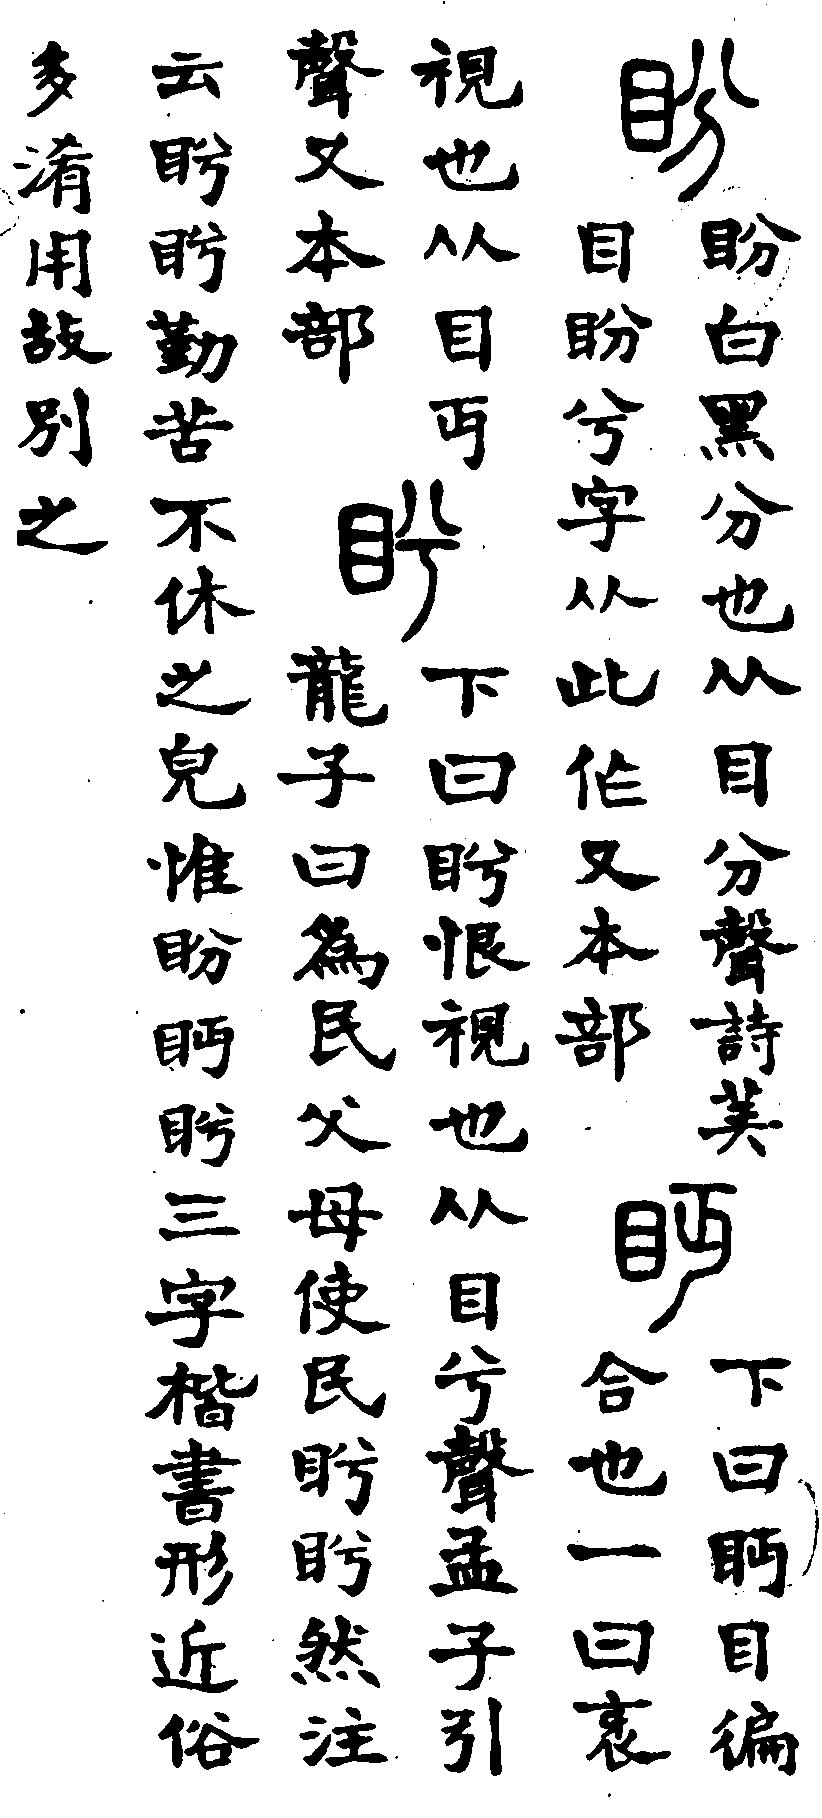 盼
盼白黑分也从目分聲詩美
目盼兮字从此作又本部
眄
下曰眄目徧
合也一曰衺
視也从目丏
聲又本部
盻
下曰盻恨視也从目兮聲孟子引
龍子曰為民父母使民盻盻然注
云盻盻勤苦不休之皃惟盼眄盻三字楷書形近俗
多淆用故別之